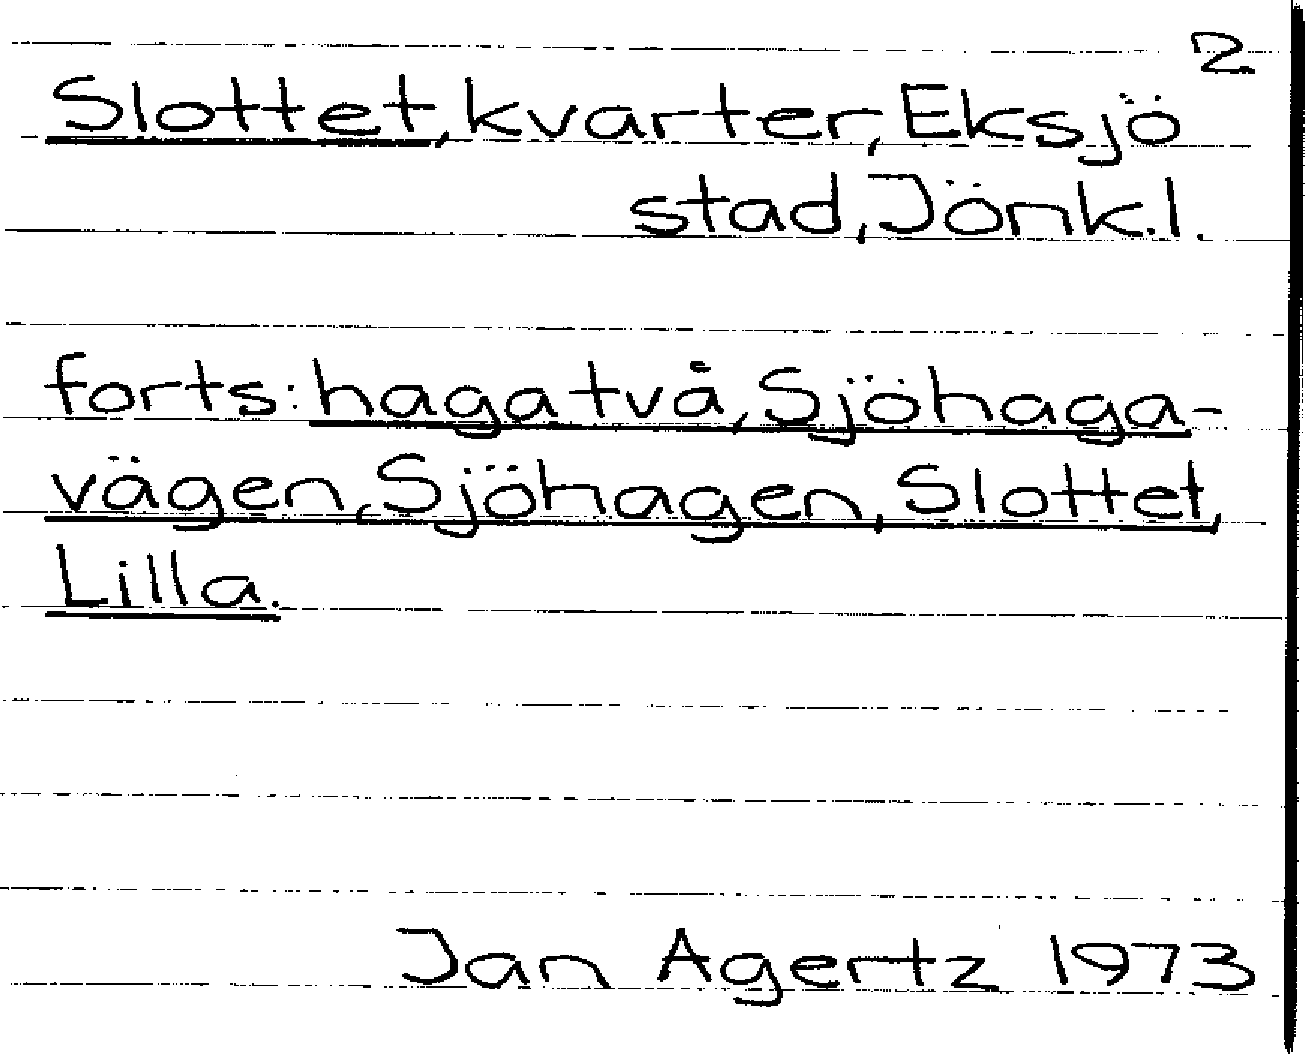 2
Slottet, kvarter, Eksjö
stad, Jönk.l.
forts: hagatvå, Sjöhaga-
vägen, Sjöhagen, Slottet,
Lilla.
Jan Agertz 1973